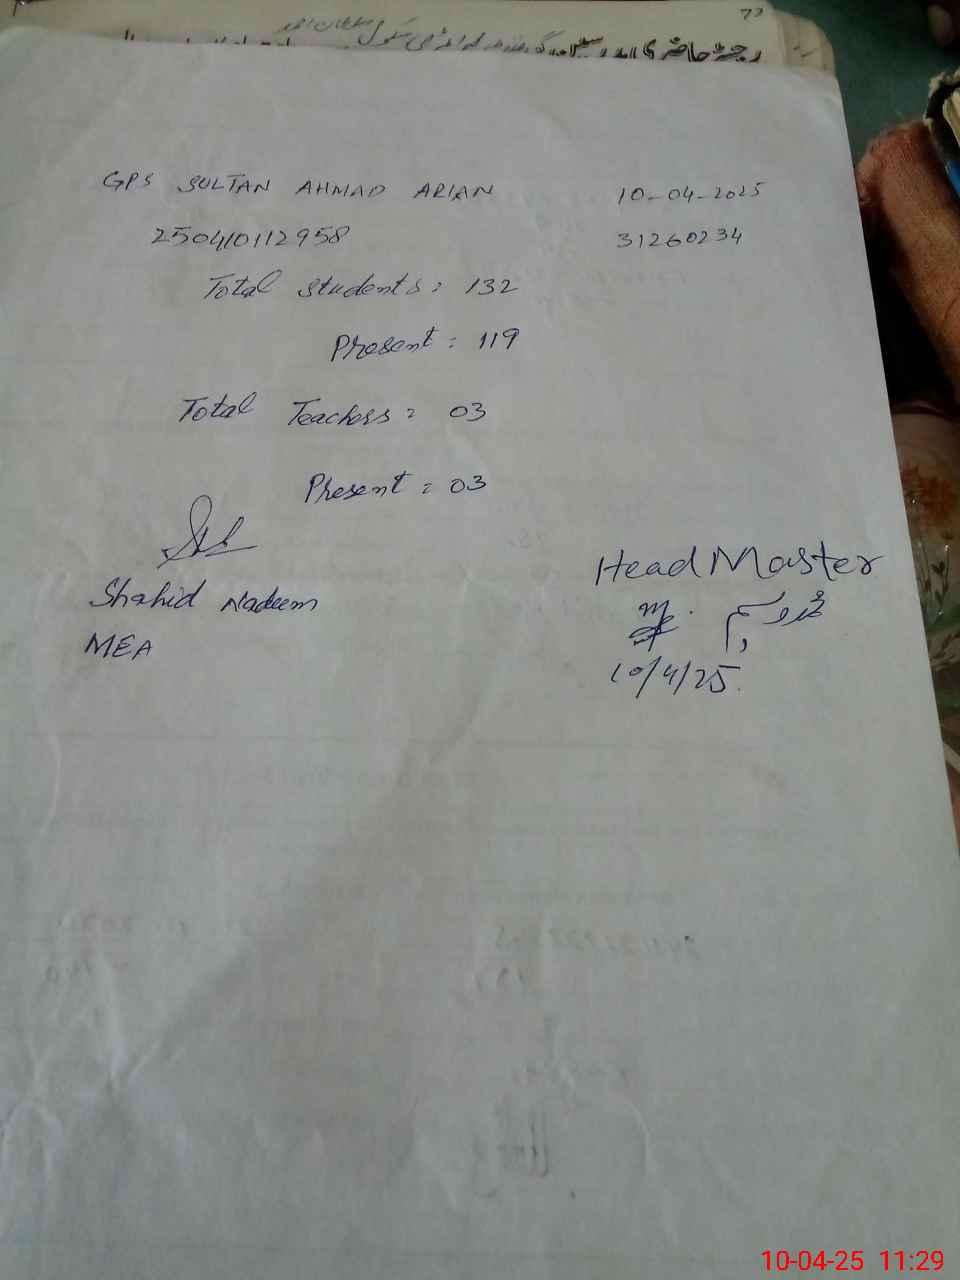 73
رجسٹر حاضری
GPS SULTAN AHMAD ARIAN 10-04-2025
250410112958 31260234
Total Students: 132
Present: 119
Total Teachers: 03
Present: 03
Shahid Nadeem
MEA
Head Master
10/4/25.
10-04-25 11:29